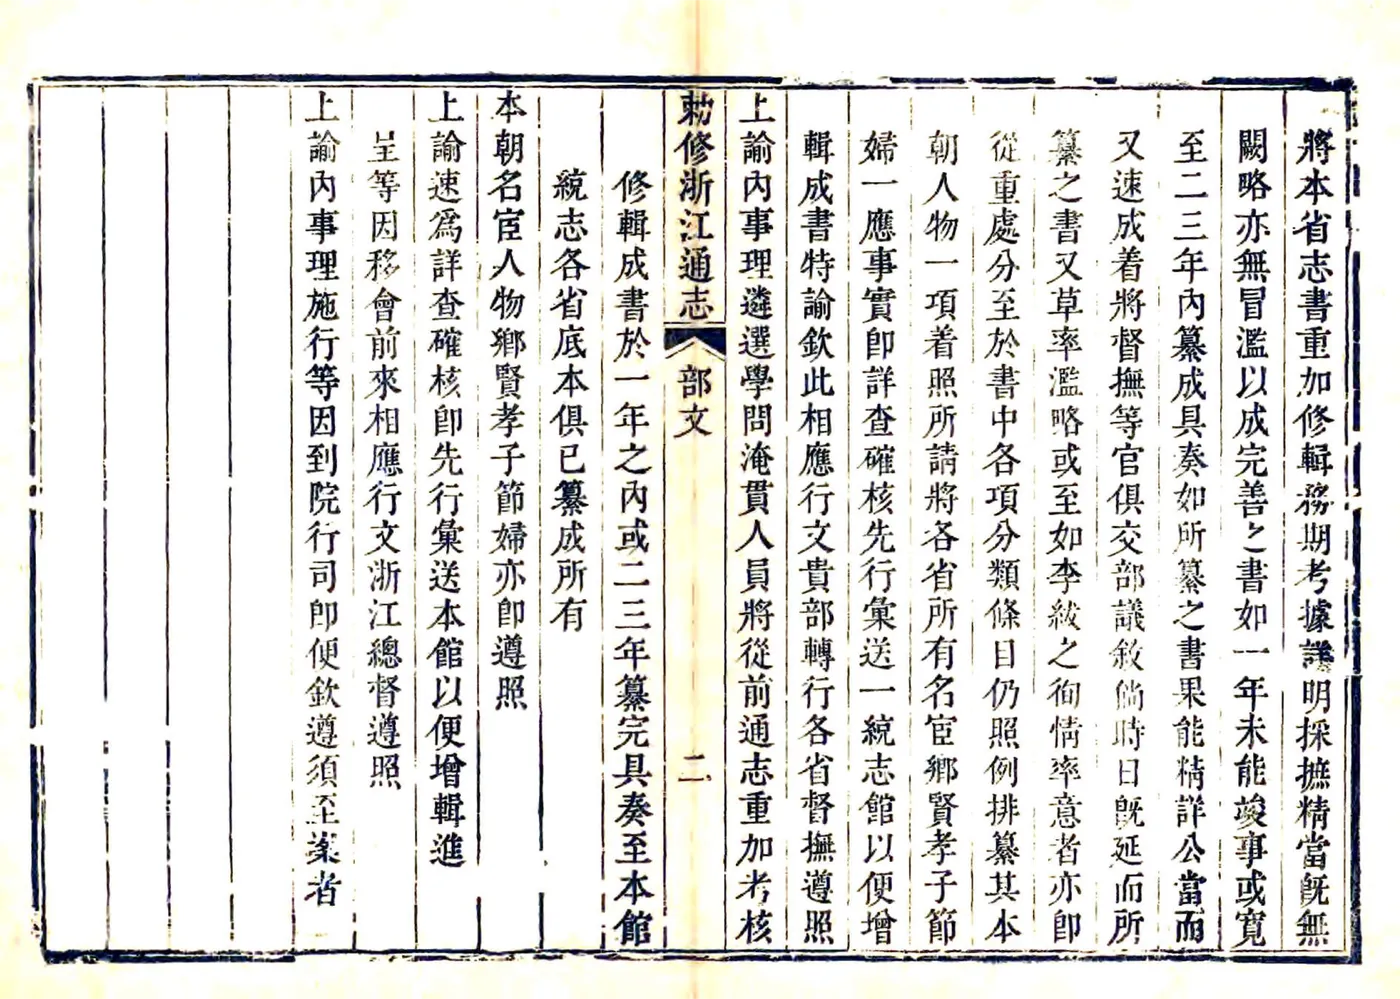 將本省志書重加修輯務期考據詳明採摭精當旣無
闕略亦無冒濫以成完善之書如一年未能竣事或寬
至二三年內纂成具奏如所纂之書果能精詳公當而
又速成着將督撫等官俱交部議敘倘時日旣延而所
纂之書又草率濫略或至如李紱之徇情率意者亦卽
從重處分至於書中各項分類條目仍照例排纂其本
朝人物一項着照所請將各省所有名宦鄉賢孝子節
婦一應事實卽詳查確核先行彙送一統志館以便增
輯成書特諭欽此相應行文貴部轉行各省督撫遵照
上諭內事理遴選學問淹貫人員將從前通志重加考核
勅修浙江通志 部文 二
修輯成書於一年之內或二三年纂完具奏至本館
統志各省底本俱已纂成所有
本朝名宦人物鄉賢孝子節婦亦卽遵照
上諭速爲詳查確核卽先行彙送本館以便增輯進
呈等因移會前來相應行文浙江總督遵照
上諭內事理施行等因到院行司卽便欽遵須至案者